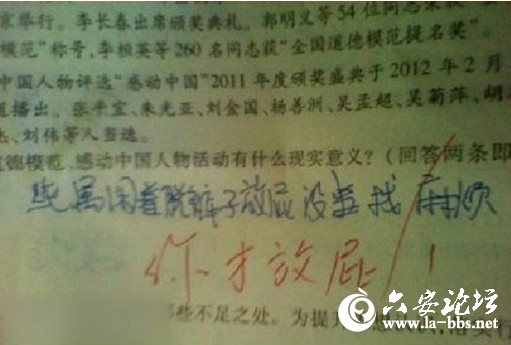 京举行。李长春出席颁奖典礼。郭明义等54位同志荣获"全
模范"称号,李桓英等260名同志获"全国道德模范提名奖"。
中国人物评选"感动中国"2011年度颁奖盛典于2012年2月
道播出。张平宜、朱光亚、刘金国、杨善洲、吴孟超、吴菊萍、胡
杰、刘伟等人当选。
道德模范、感动中国人物活动有什么现实意义?(回答两条即
纯属闲着脱裤子放屁没事找麻烦
你才放屁!
些不足之处。为提升
六安论坛
www.la-bbs.net